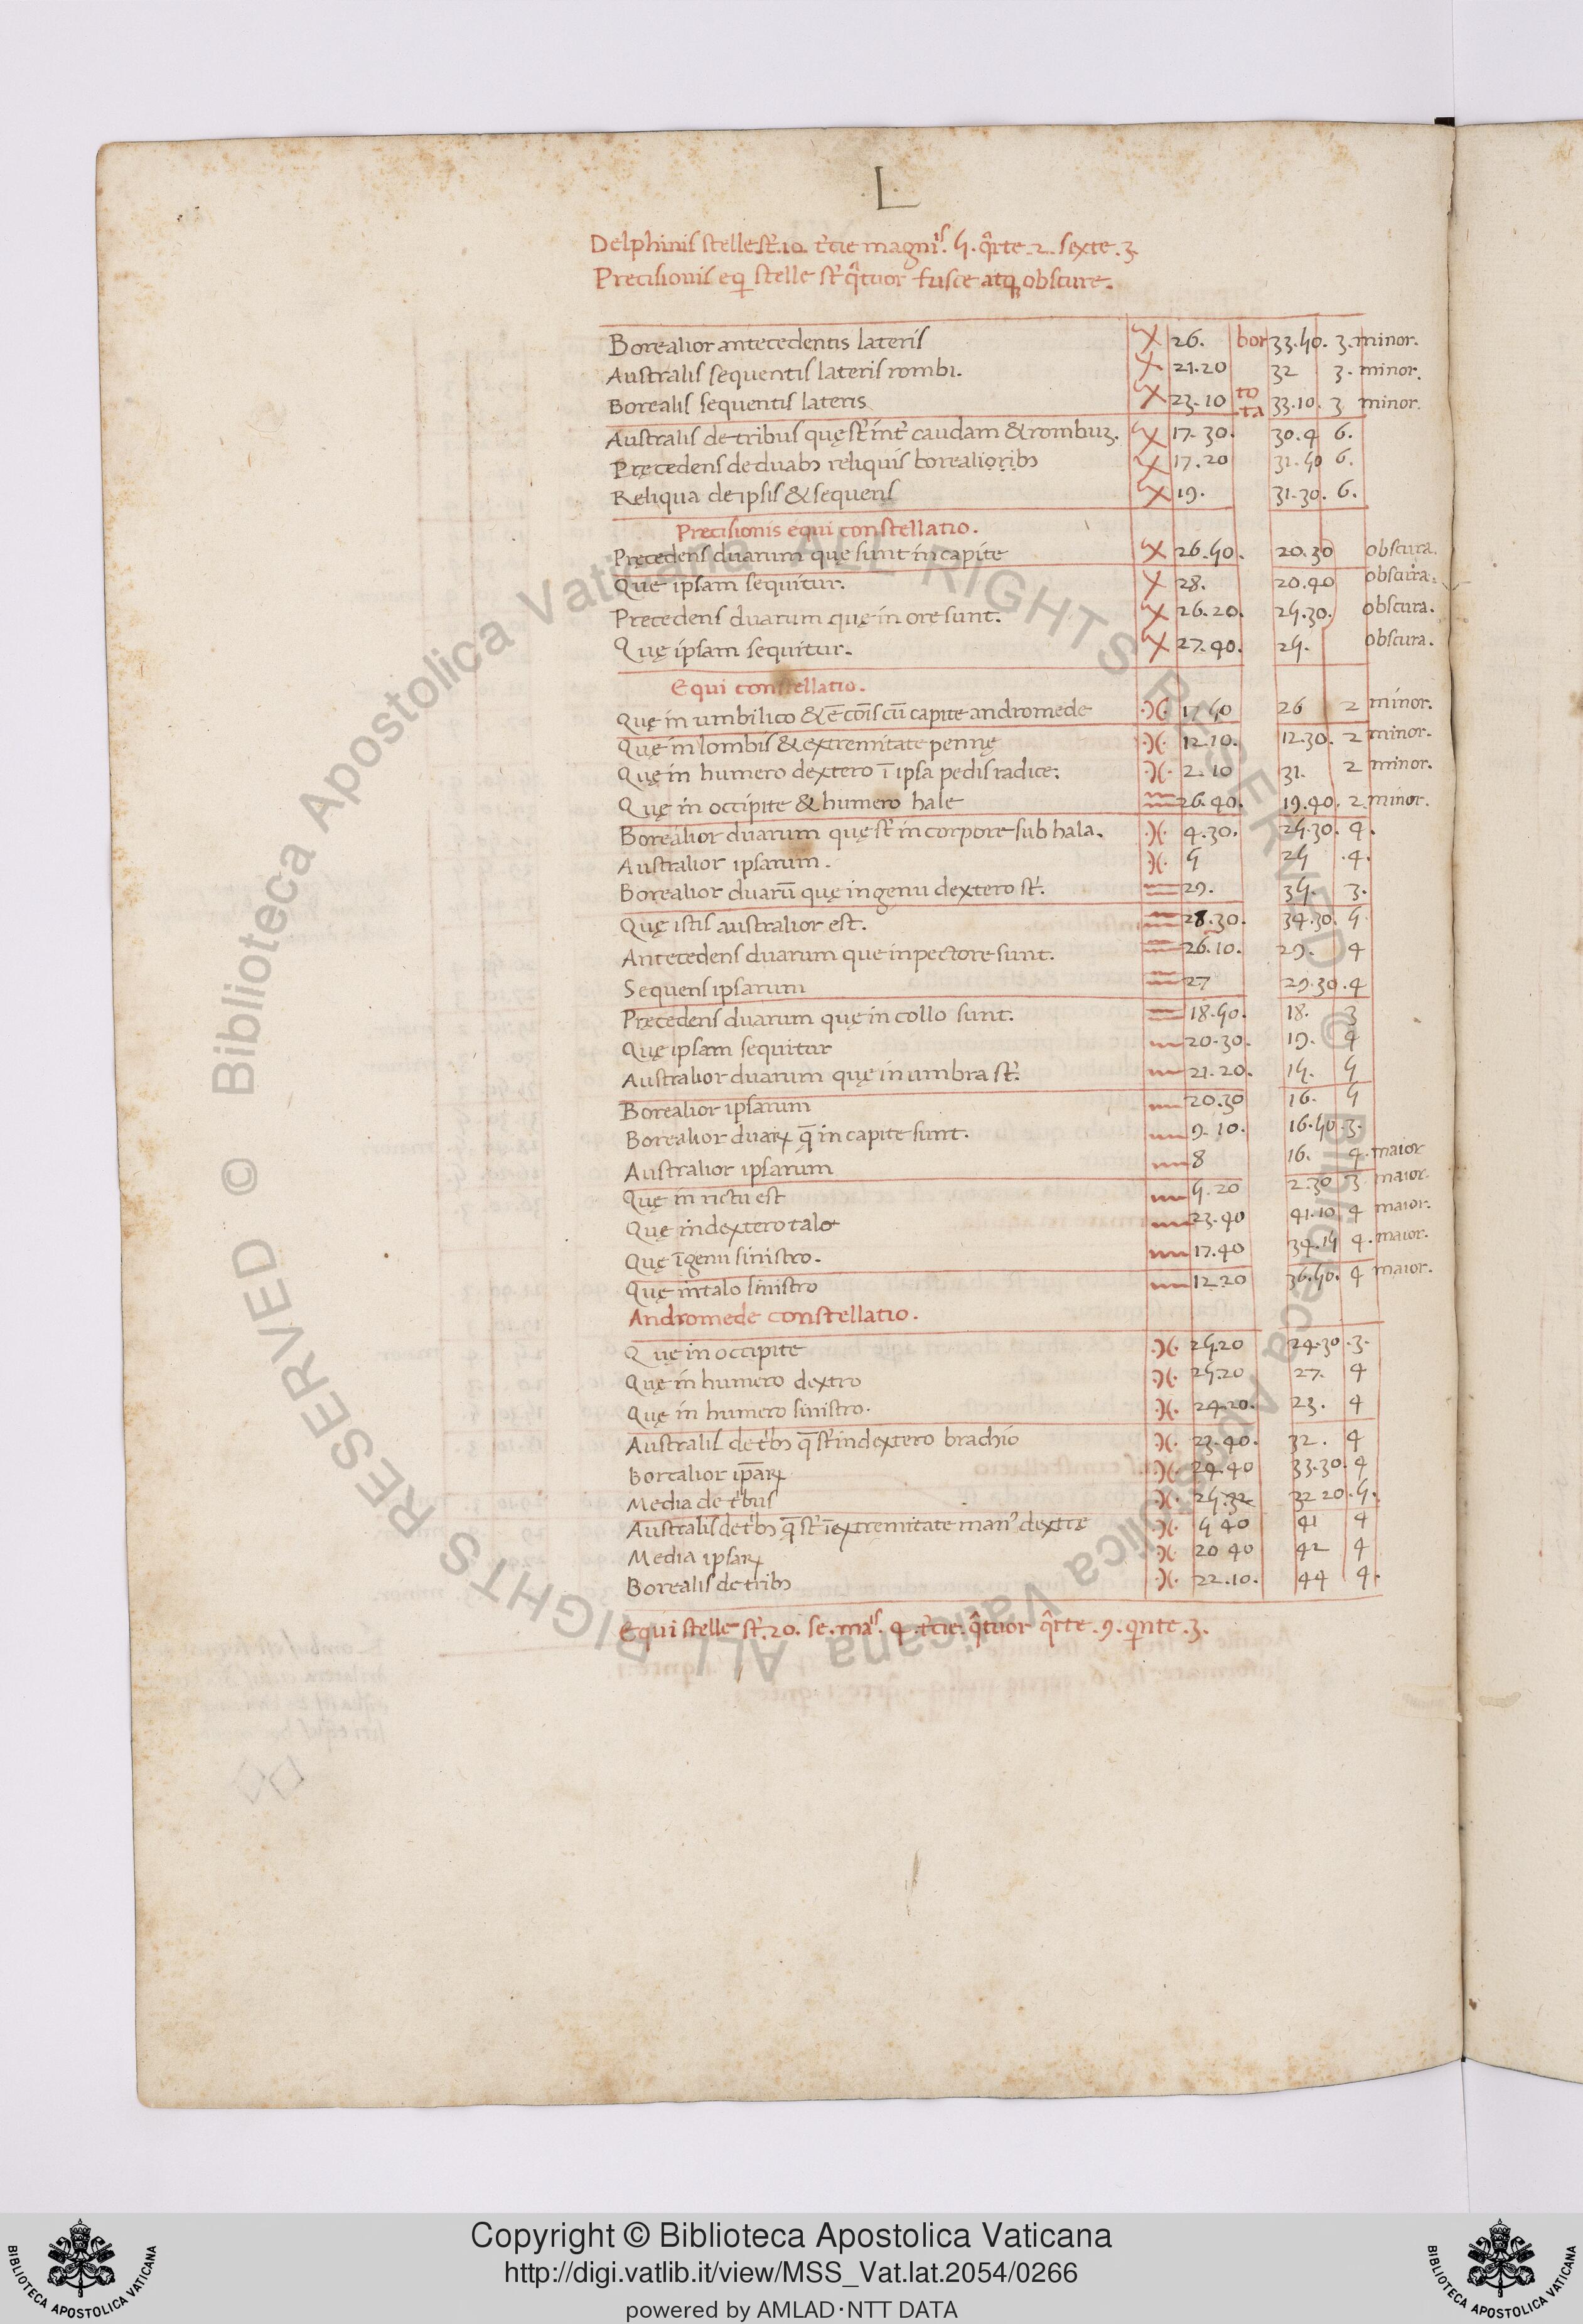 .L.
Delphinis stelle st̄. 10. t̄cie magnis. 5. qr̄te. 2. sexte. 3
Precisionis eq̨ stelle st̄ qr̄tuor fusce atq; obscure.
Borealior antecedentis lateris ♐ 26. bor 33.50. 3. minor.
Australis sequentis lateris rombi. ♐ 21.20 32 3. minor.
Borealis sequentis lateris ♐ 23.10 to ta 33.10. 3 minor.
Australis de tribus quę st̄ int̄ caudam & rombuz. ♐ 17.30. 30.4 6.
Pręcedens de duabꝫ reliquis borealioribꝫ ♐ 17.20 31.50 6.
Reliqua de ipsis & sequens ♐ 19. 31.30. 6.
Precisionis equi constellatio.
Pręcedens duarum quę sunt in capite ♐ 26.50. 20.30 obscura.
Quę ipsam sequitur. ♐ 28. 20.40 obscura.
Precedens duarum quę in ore sunt. ♐ 26.20. 25.30. obscura.
Quę ipsam sequitur. ♐ 27.40. 25. obscura.
Equi constellatio.
Quę in umbilico & ē cōis cū capite andromede ♓ 17.50 26 2 minor.
Quę in lombis & extremitate pennę ♓ 12.10. 12.30. 2 minor.
Quę in humero dextero ī ipsa pedis radice. ♓ 2.10 31. 2 minor.
Quę in occipite & humero hale ♒ 26.40. 19.40. 2. minor.
Borealior duarum quę st̄ in corpore sub hala. ♓ 4.30. 25.30. 4.
Australior ipsarum. ♓ 5 25 .4.
Borealior duarū quę in genu dextero st̄. ♒ 29. 35. 3.
Quę istis australior est. ♒ 28.30. 34.30. 5
Antecedens duarum que in pectore sunt. ♒ 26.10. 29. 4
Sequens ipsarum ♒ 27 29.30.4
Pręcedens duarum quę in collo sunt. ♒ 18.50. 18. 3
Quę ipsam sequitur ♒ 20.30. 19. 4
Australior duarum quę in umbra st̄. ♒ 21.20. 15. 5
Borealior ipsarum ♒ 20.30 16. 5
Borealior duaꝝ q̄ in capite sunt. ♒ 9.10. 16.50.3.
Australior ipsarum ♒ 8 16. 4. maior
Quę in rictu est ♒ 5.20 2.30 3 maior.
Quę in dextero talo ♒ 23.40 41.10 4 maior.
Quę ī genu sinistro. ♒ 17.40 34.15 4. maior.
Quę in talo sinistro ♒ 12.20 36.50. 4 maior.
Andromede constellatio.
Quę in occipite ♓ 25.20 24.30.3.
Quę in humero dextro ♓ 25.20 27. 4
Quę in humero sinistro. ♓ 24.20. 23. 4
Australis de t̄bꝫ q̄ st̄ in dextero brachio ♓ 23.40. 32. 4
Borealior ip̄aꝝ ♓ 24.40 33.30.4
Media de t̄bus ♓ 25.32 32 20.5.
Australis de t̄bꝫ q̄ st̄ ī extremitate man' dextrę ♓ 5 40 41 4
Media ipsaꝝ ♓ 20 40 42 4
Borealis de tribꝫ ♓ 22.10. 44 4.
Equi stelle st̄. 20. se. mais. 4. t̄cie. qr̄tuor qr̄te. 9. qnte. 3.
© Biblioteca Apostolica Vaticana ALL RIGHTS RESERVED © Biblioteca Apostolica Vaticana ALL RIGHTS RESERVED
Copyright © Biblioteca Apostolica Vaticana
http://digi.vatlib.it/view/MSS_Vat.lat.2054/0266
powered by AMLAD·NTT DATA
BIBLIOTECA APOSTOLICA VATICANA
BIBLIOTECA APOSTOLICA VATICANA